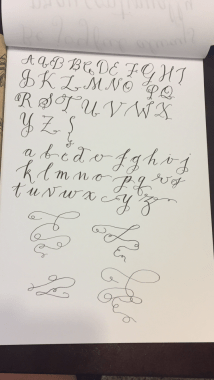 A A B B C D E F G H I
J K L M N O P Q
R S T U V W X
Y Z
a b c d e f g h i j
k l m n o p q r s
t u v w x y z